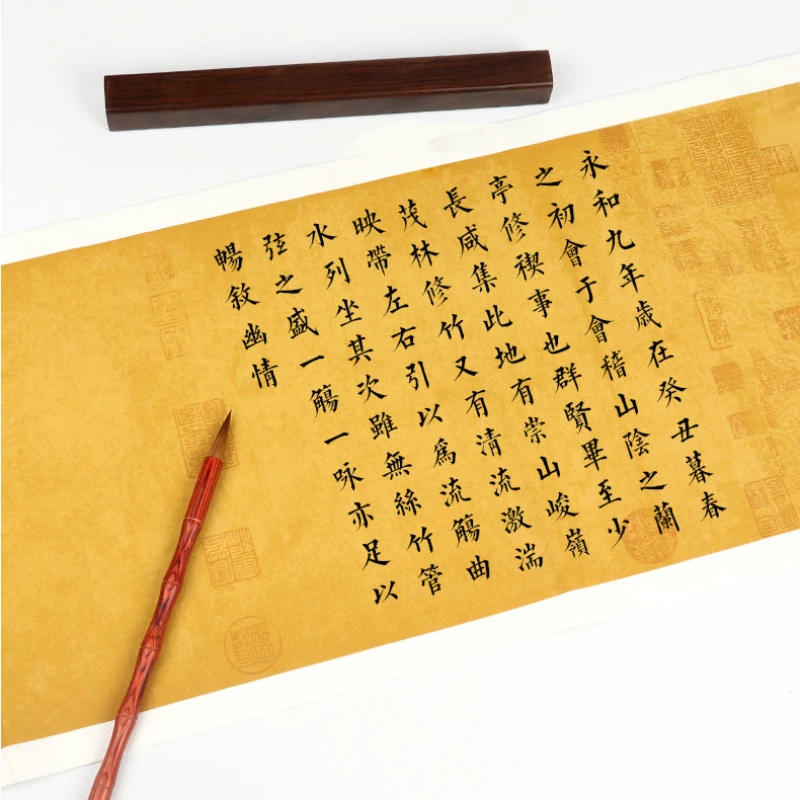 永和九年歲在癸丑暮春
之初會于會稽山陰之蘭
亭修禊事也群賢畢至少
長咸集此地有崇山峻嶺
茂林修竹又有清流激湍
映帶左右引以為流觴曲
水列坐其次雖無絲竹管
弦之盛一觴一咏亦足以
暢敘幽情